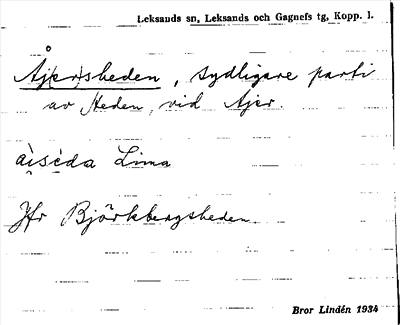 Leksands sn, Leksands och Gagnefs tg, Kopp. l.
Åj(er)sheden, sydligare parti
av Heden, vid Ajer.
àiséda Lima
Jfr Björkbergsheden.
Bror Lindén 1934